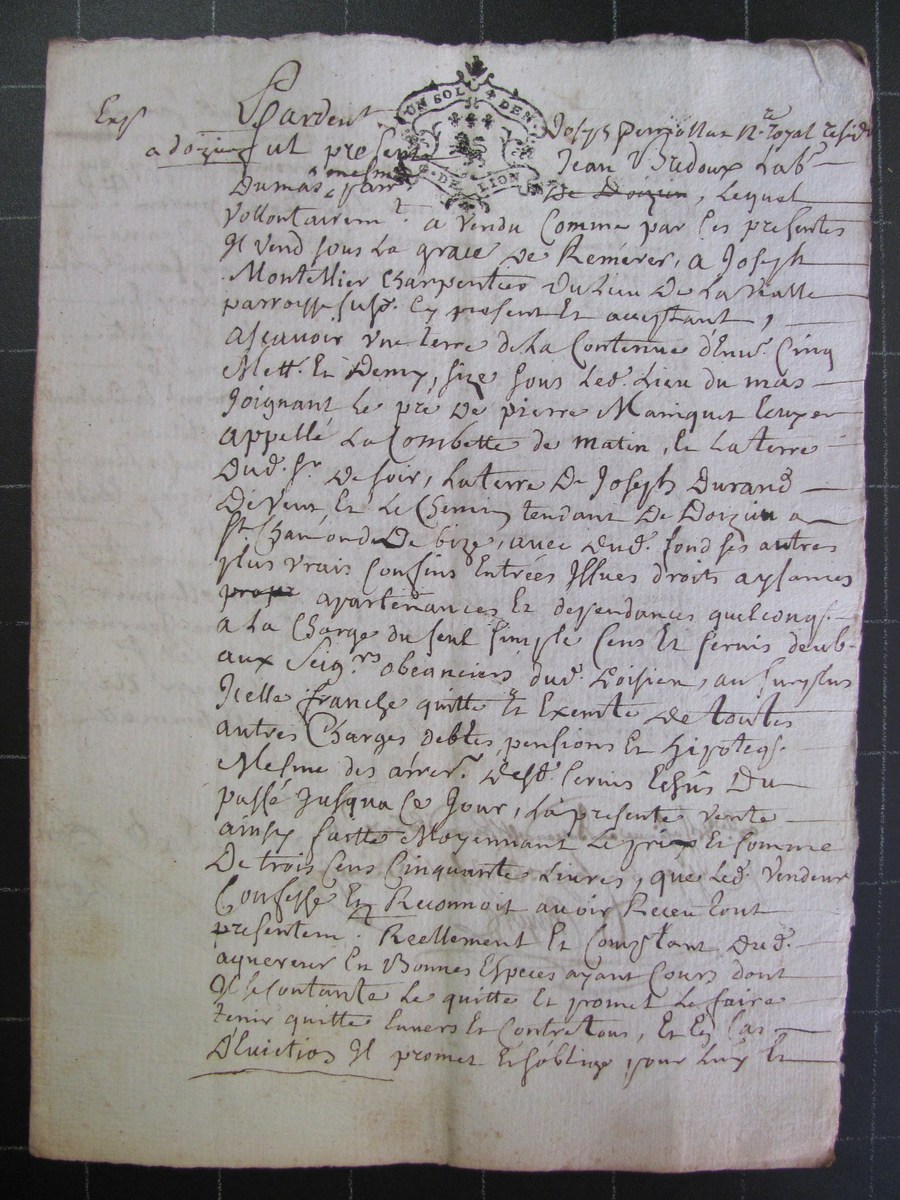 Pardevt Joseph Perrollax N.re royal resid.
a doizieu ut present Jean Bridoux Lab.r
Dumas, mesme parr De Doizieu, Lequel
vollontairem.t a vendu Comme par Ces presentes
Il vend sous La grace De Remérer, a Joseph
Montellier Charpentier Du Lieu De La
parroisse susd. Cy present Et acceptant,
ascavoir une terre de La Contenue d'Env. Cinq
Mett. Et Demy, size sous Led. Lieu du mas
Joignant Le pré De pierre Mainquet
appellé La Combette de matin, et La terre
Dud. S.r De soir, La terre De Joseph Durand
De vent Et Le Chemin tendant De Doizieu a
S.t Chamond De bize, avec Dud. fond ses autres
plus vrais Confins Entrées Issues droits aysances
apartenances Et dependances quelconqs.
a La Charge du seul simple Cens Et servis deub
aux Seig.rs obeanciers dud. Loisieu, au surplus
Icelle franche quitte Et Exemte De toutes
autres Charges debtes pensions Et hipoteqs.
Mesme des arrer. Desd. servis Echûs Du
passé Jusqua Ce Jour, La presente vente
ainsy faitte Moyennant Le prix Et somme
De trois Cens Cinquante Livres, que Led. Vendeur
Confesse Et Reconnoit avoir Receu tout
presentem. Reellement Et Comptant Dud.
aquereur En Bonnes Especes ayant Cours dont
Il se Contante Le quitte Et promet Le faire
tenir quitte Envers Et Contre tous, Et En Cas
D'Eviction Il promet Et s'oblige pour Luy Et
UN SOL 4 DEN.
G. DE LION